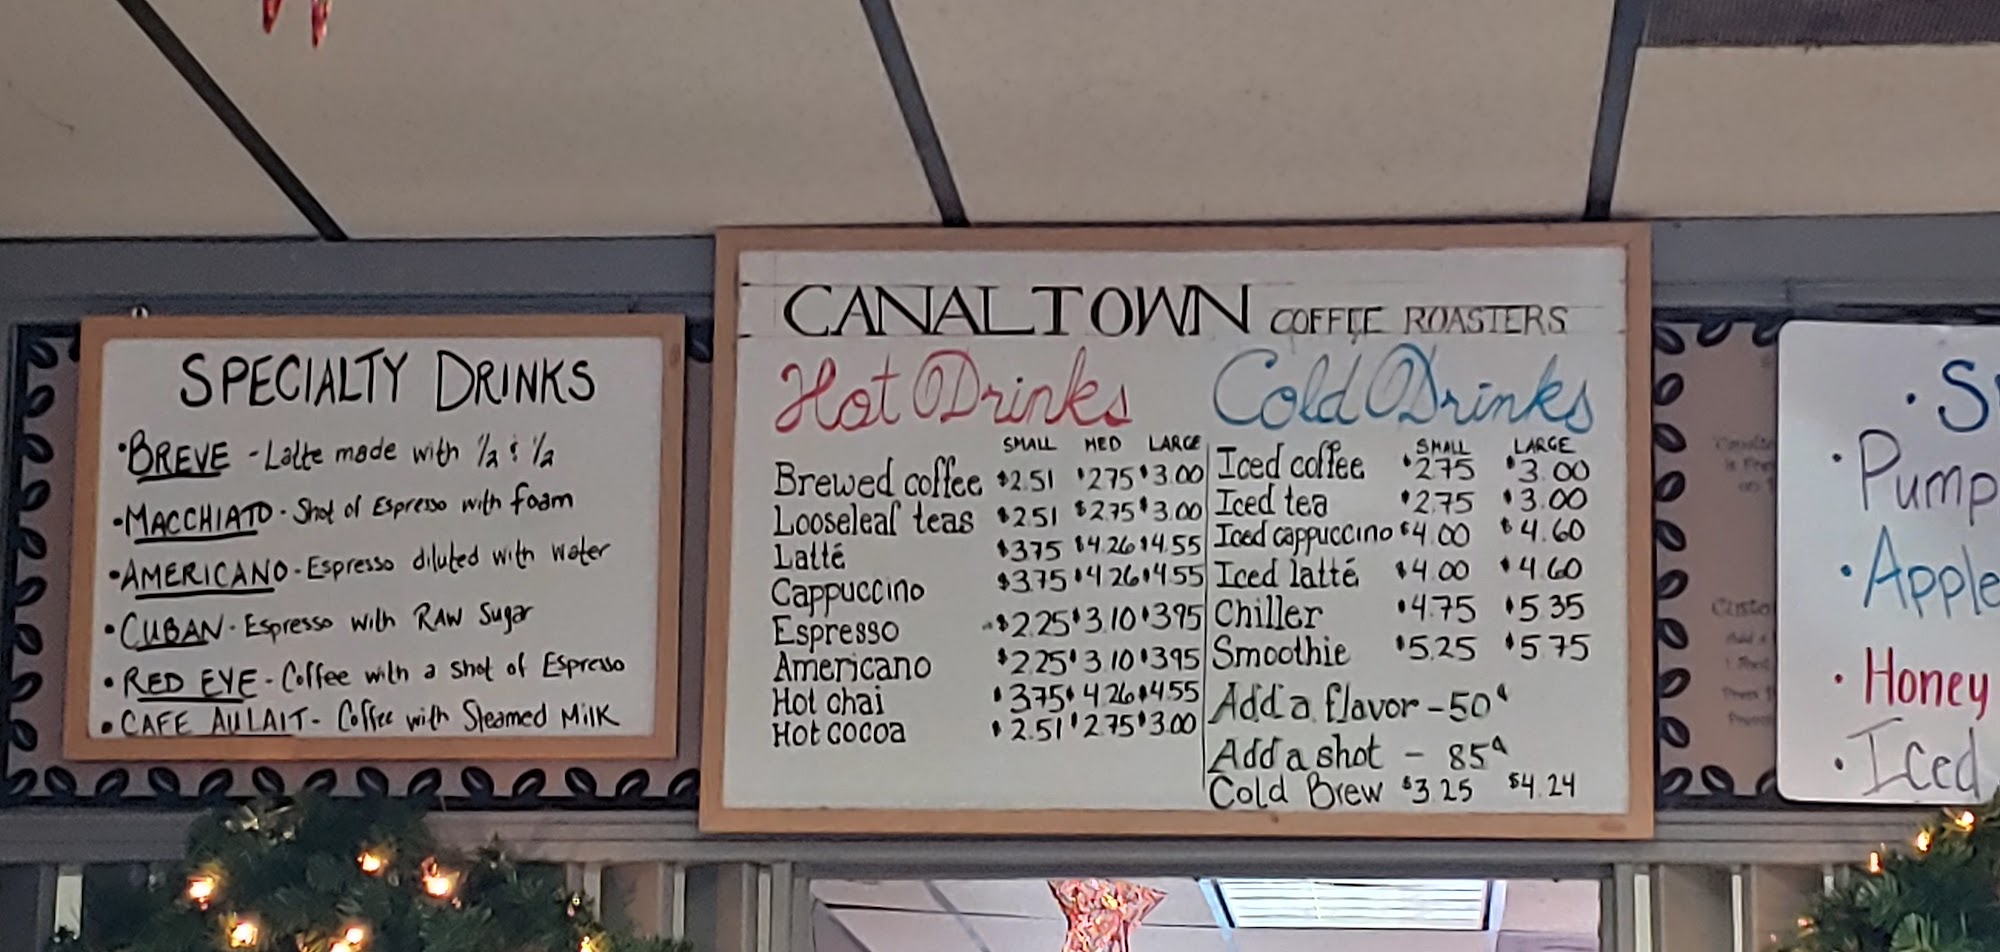 SPECIALTY DRINKS
• BREVE - Latte made with 1/2 & 1/2
• MACCHIATO - Shot of Espresso with foam
• AMERICANO - Espresso diluted with water
• CUBAN - Espresso with RAW Sugar
• RED EYE - Coffee with a shot of Espresso
• CAFE AU LAIT - Coffee with Steamed Milk
CANALTOWN COFFEE ROASTERS
Hot Drinks
SMALL MED LARGE
Brewed coffee $2.51 $2.75 $3.00
Looseleaf teas $2.51 $2.75 $3.00
Latté $3.75 $4.26 $4.55
Cappuccino $3.75 $4.26 $4.55
Espresso $2.25 $3.10 $3.95
Americano $2.25 $3.10 $3.95
Hot chai $3.75 $4.26 $4.55
Hot cocoa $2.51 $2.75 $3.00
Cold Drinks
SMALL LARGE
Iced coffee $2.75 $3.00
Iced tea $2.75 $3.00
Iced cappuccino $4.00 $4.60
Iced latté $4.00 $4.60
Chiller $4.75 $5.35
Smoothie $5.25 $5.75
Add a flavor - 50¢
Add a shot - 85¢
Cold Brew $3.25 $4.24
• S
• Pump
• Apple
• Honey
• Iced